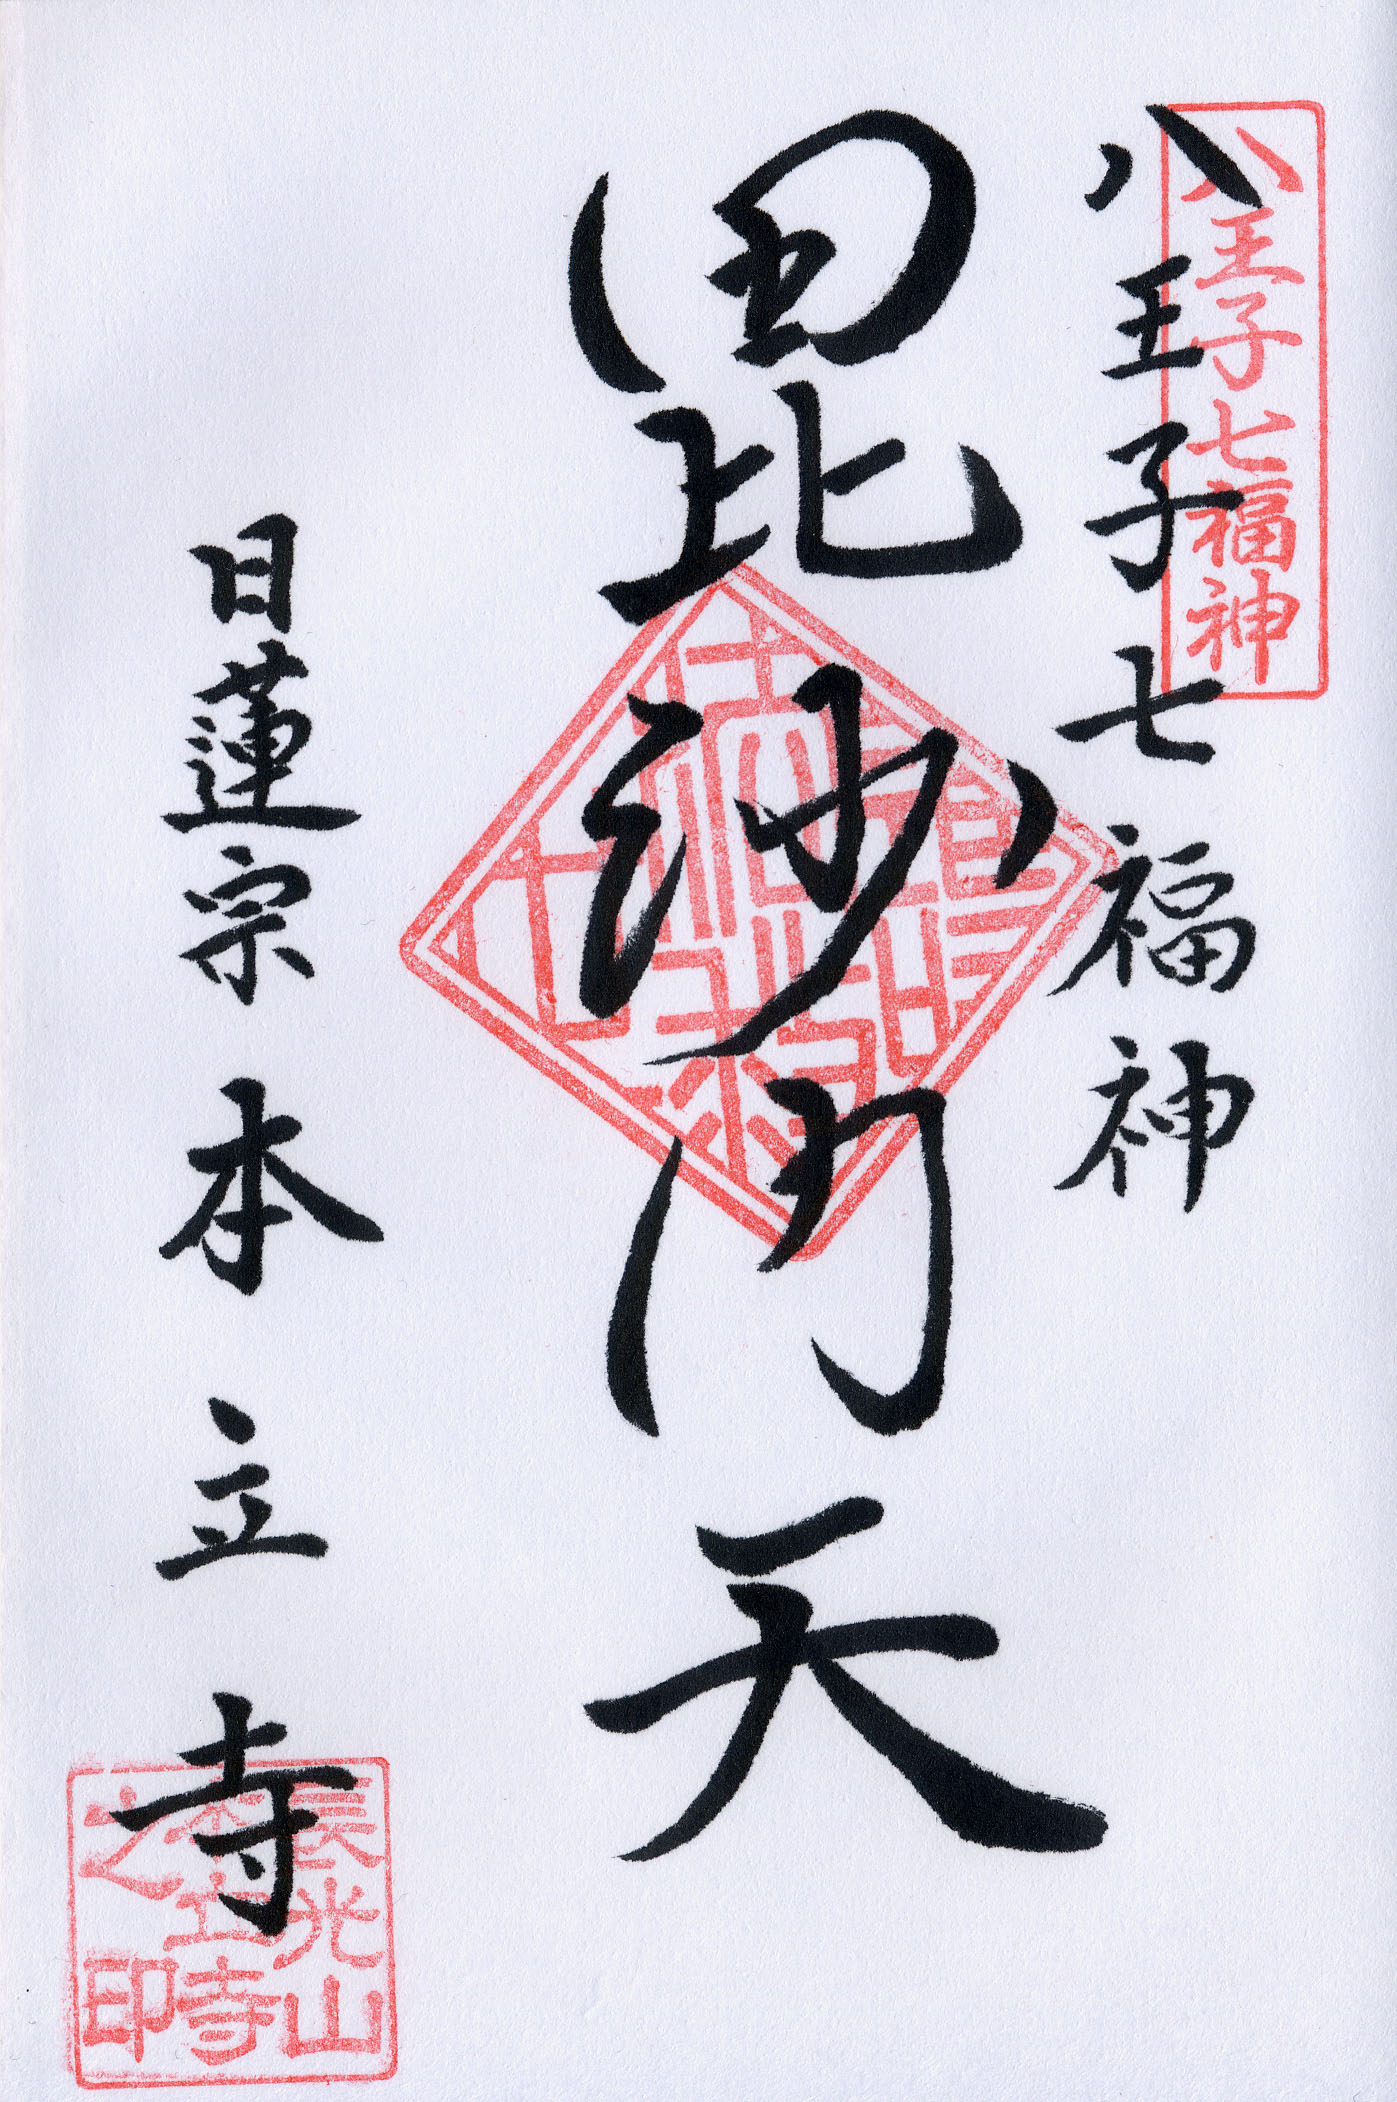 八王子七福神
八王子七福神
毘沙門天
日蓮宗 本立寺
長光山
本立寺
之印